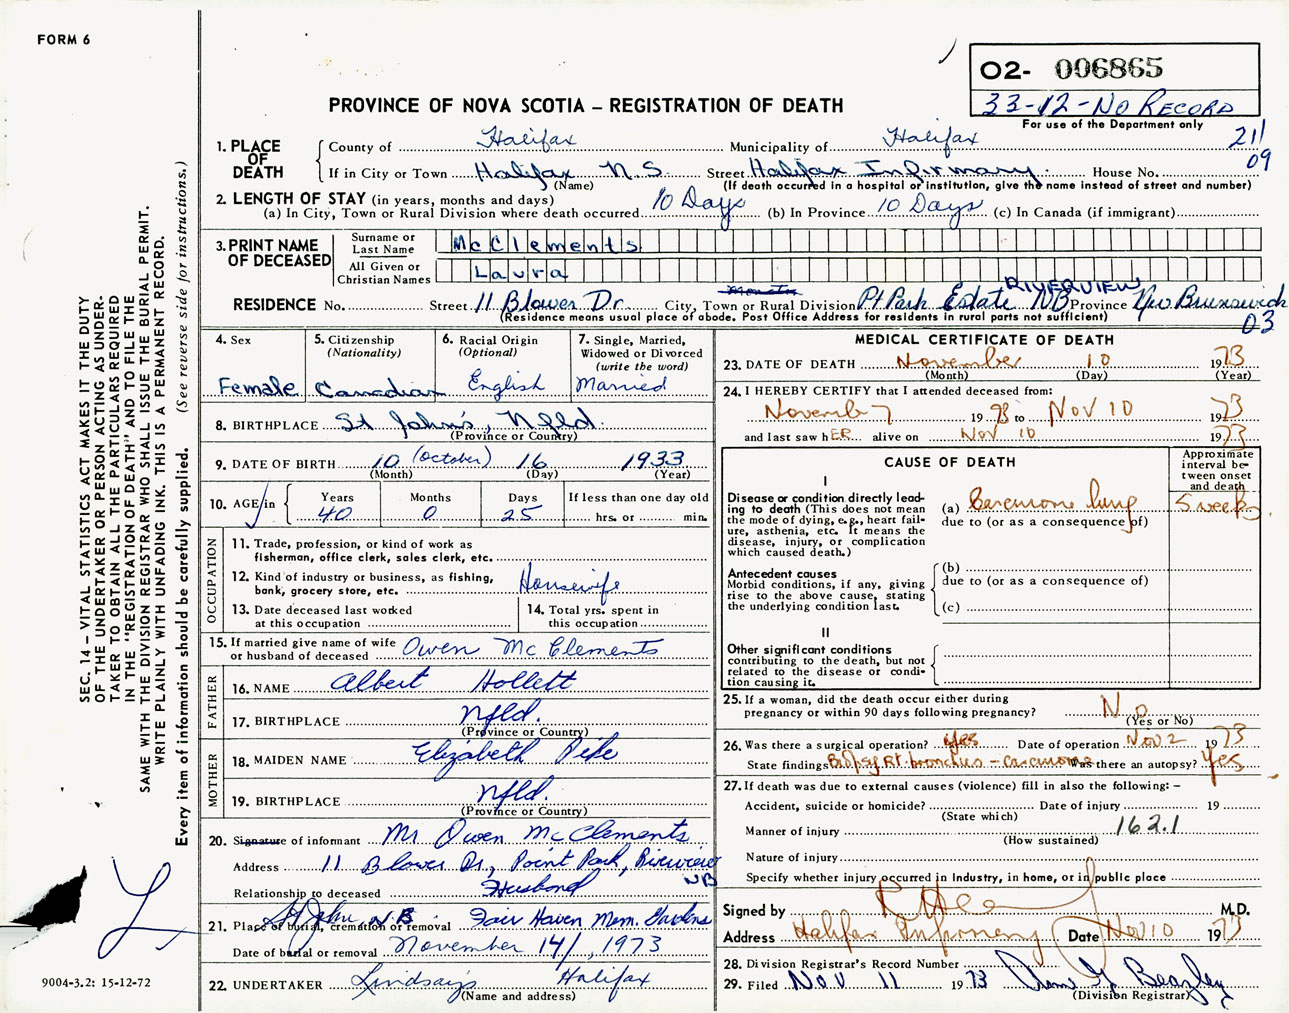 FORM 6
O2- 006865
33-12-No Record
For use of the Department only
PROVINCE OF NOVA SCOTIA – REGISTRATION OF DEATH
211
09
1. PLACE OF DEATH
County of Halifax Municipality of Halifax
If in City or Town Halifax N.S. Street Halifax Infirmary House No.
(Name) (If death occurred in a hospital or institution, give the name instead of street and number)
2. LENGTH OF STAY (in years, months and days)
(a) In City, Town or Rural Division where death occurred 10 Days (b) In Province 10 Days (c) In Canada (if immigrant)
3. PRINT NAME OF DECEASED
Surname or Last Name McClements
All Given or Christian Names Laura
RIVERVIEW
RESIDENCE No. Street 11 Blower Dr. City, Town or Rural Division Pt. Park Estate NB Province New Brunswick
(Residence means usual place of abode. Post Office Address for residents in rural parts not sufficient)
03
4. Sex Female
5. Citizenship (Nationality) Canadian
6. Racial Origin (Optional) English
7. Single, Married, Widowed or Divorced (write the word) Married
8. BIRTHPLACE St John's, Nfld.
(Province or Country)
9. DATE OF BIRTH 10 (October) 16 1933
(Month) (Day) (Year)
10. AGE in Years 40 Months 0 Days 25 If less than one day old hrs. or min.
OCCUPATION
11. Trade, profession, or kind of work as fisherman, office clerk, sales clerk, etc.
12. Kind of industry or business, as fishing, bank, grocery store, etc. Housewife
13. Date deceased last worked at this occupation
14. Total yrs. spent in this occupation
15. If married give name of wife or husband of deceased Owen McClements
FATHER
16. NAME Albert Hollett
17. BIRTHPLACE Nfld.
(Province or Country)
MOTHER
18. MAIDEN NAME Elizabeth Pike
19. BIRTHPLACE Nfld.
(Province or Country)
20. Signature of informant Mr Owen McClements
Address 11 Blower Dr, Point Park, Riverview NB
Relationship to deceased Husband
21. Place of burial, cremation or removal St John N.B. Fair Haven Mem. Gardens
Date of burial or removal November 14/, 1973
22. UNDERTAKER Lindsay's Halifax
(Name and address)
MEDICAL CERTIFICATE OF DEATH
23. DATE OF DEATH November 10 1973
(Month) (Day) (Year)
24. I HEREBY CERTIFY that I attended deceased from:
November 7 1973 to Nov 10 1973
and last saw hER alive on Nov 10 1973
CAUSE OF DEATH
Approximate interval between onset and death
I
Disease or condition directly leading to death (This does not mean the mode of dying, e.g., heart failure, asthenia, etc. It means the disease, injury, or complication which caused death.)
(a) Carcinoma lung 5 weeks
due to (or as a consequence of)
Antecedent causes
Morbid conditions, if any, giving rise to the above cause, stating the underlying condition last.
(b)
due to (or as a consequence of)
(c)
II
Other significant conditions contributing to the death, but not related to the disease or condition causing it.
25. If a woman, did the death occur either during pregnancy or within 90 days following pregnancy? No
(Yes or No)
26. Was there a surgical operation? Yes Date of operation Nov 2 1973
State findings Biopsy Rt. bronchus – carcinoma Was there an autopsy? Yes
27. If death was due to external causes (violence) fill in also the following: –
Accident, suicide or homicide? Date of injury 19
(State which)
Manner of injury 162.1
(How sustained)
Nature of injury
Specify whether injury occurred in Industry, in home, or in public place
Signed by M.D.
Address Halifax Infirmary Date Nov 10 1973
28. Division Registrar's Record Number
29. Filed Nov 11 1973 Beazley
(Division Registrar)
SEC. 14 – VITAL STATISTICS ACT MAKES IT THE DUTY
OF THE UNDERTAKER OR PERSON ACTING AS UNDER-
TAKER TO OBTAIN ALL THE PARTICULARS REQUIRED
IN THE "REGISTRATION OF DEATH" AND TO FILE THE
SAME WITH THE DIVISION REGISTRAR WHO SHALL ISSUE THE BURIAL PERMIT.
WRITE PLAINLY WITH UNFADING INK. THIS IS A PERMANENT RECORD.
Every item of information should be carefully supplied. (See reverse side for instructions.)
9004-3.2: 15-12-72